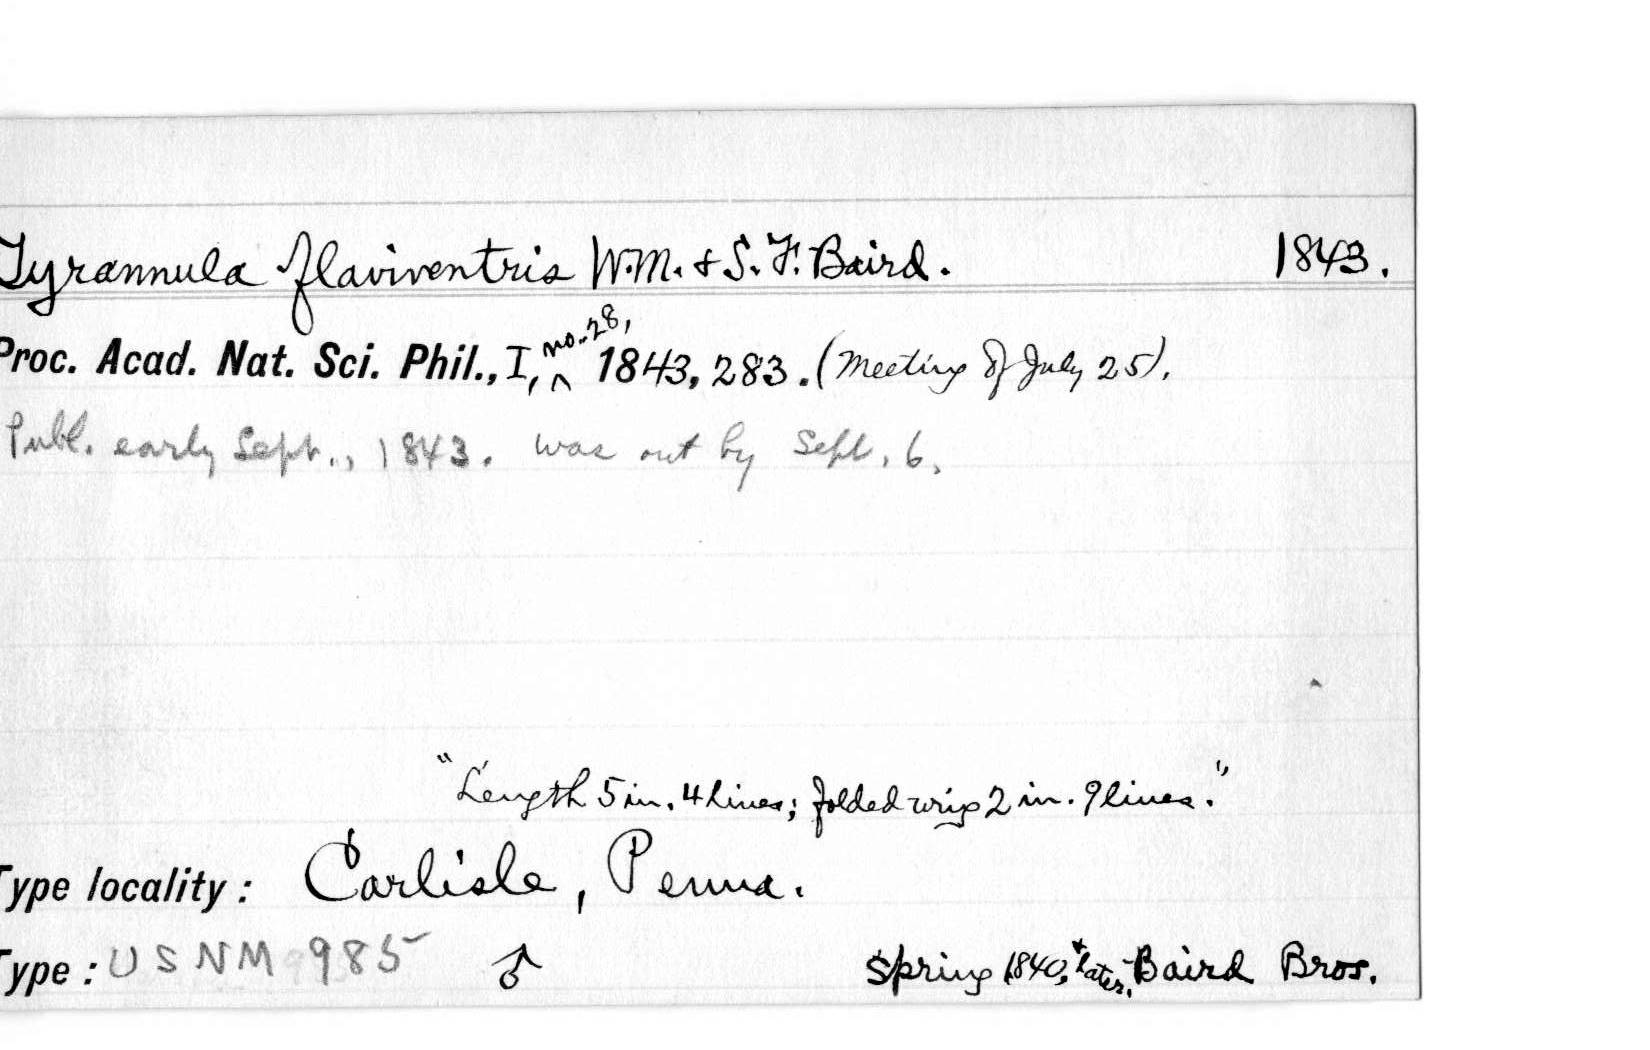 Tyrannula flaviventris W.M. & S.F. Baird. 1843.
Proc. Acad. Nat. Sci. Phil., I, no. 28, 1843, 283. (Meeting of July 25).
Publ. early Sept., 1843. was out by Sept. 6.
"Length 5 in. 4 lines; folded wing 2 in. 9 lines."
Type locality: Carlisle, Penna.
Type: USNM 985 ♂ Spring 1840, & later, Baird Bros.